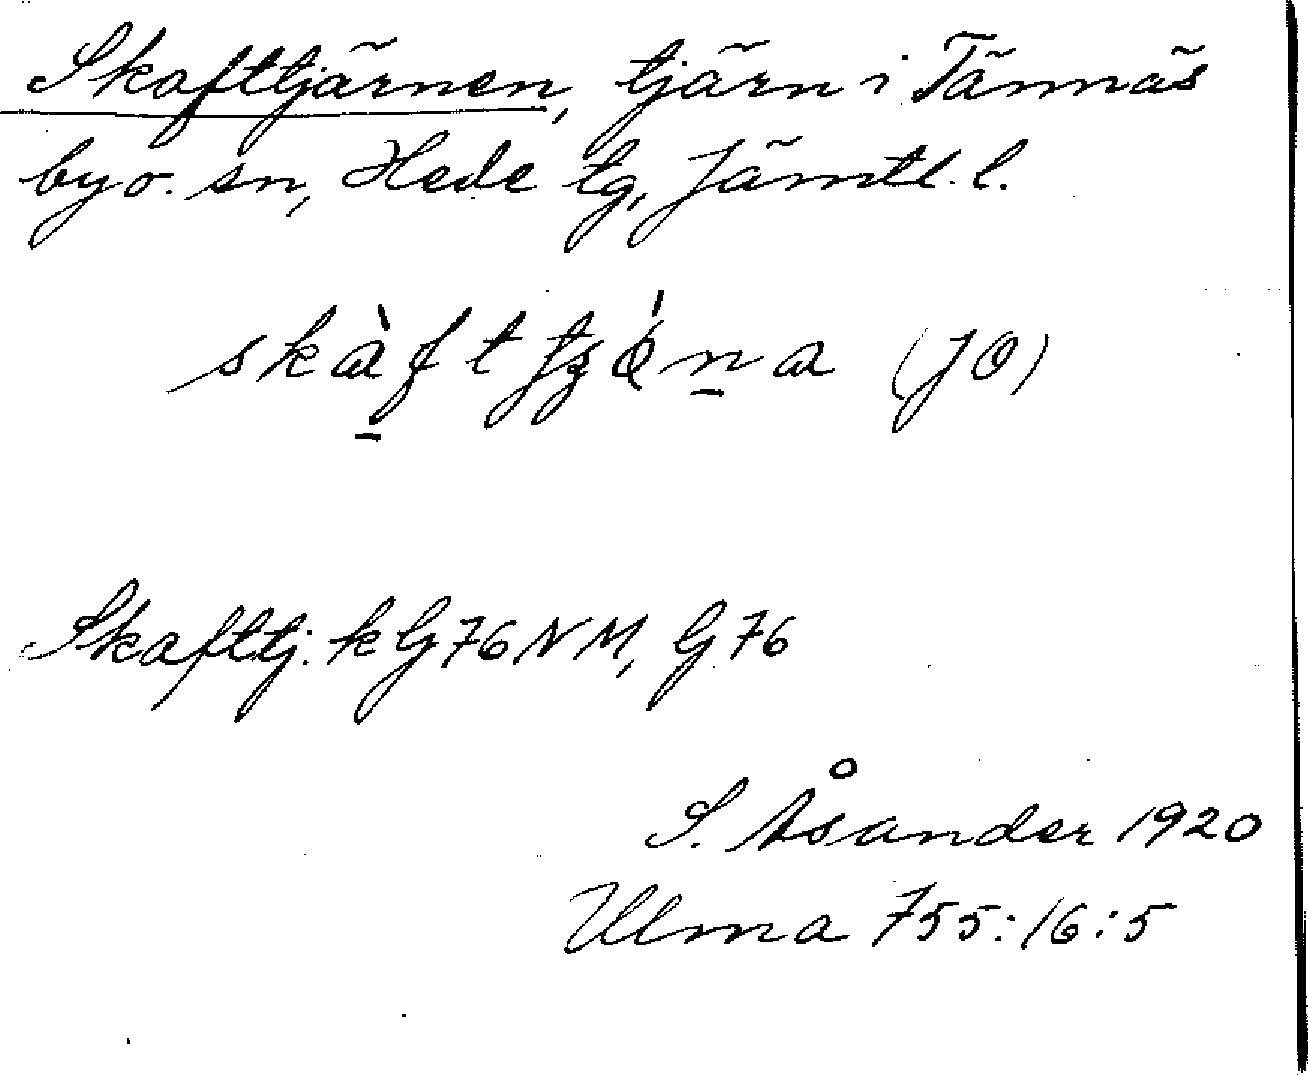 Skafttjärnen, tjärn i Tännäs
by o. sn, Hede tg, Jämtl. l.
(JO)
Skafttj. k G 76 NM, G 76
S. Åsander 1920
Ulma 755:16:5